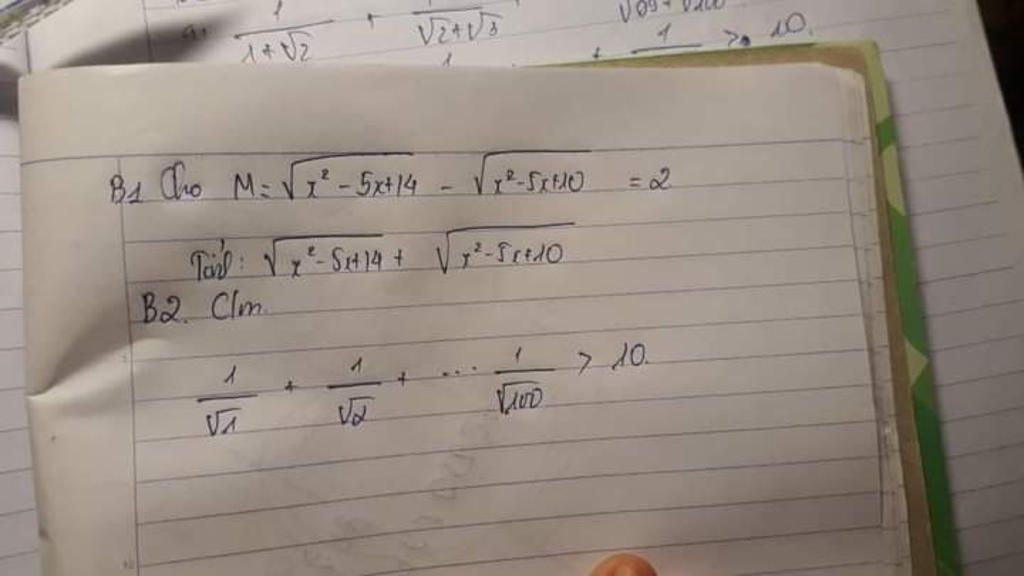 1/(1+√2) + 1/(√2+√3)
√99+√100
1 + 1 > 10.
B1 Cho M = √(x² - 5x+14) - √(x² - 5x+10) = 2
Tính: √(x² - 5x+14) + √(x² - 5x+10)
B2. C/m.
1/√1 + 1/√2 + ... 1/√100 > 10.